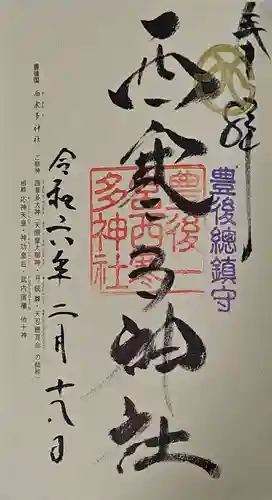 奉拝
豊後總鎮守
西寒多神社
豊後一
宮西寒
多神社
令和六年二月十八日
豊後国 西寒多神社
ご祭神 西寒多大神(天照皇大御神・月読尊・天忍穂耳命 の総称)
相殿 応神天皇・神功皇后・武内宿禰 他十神